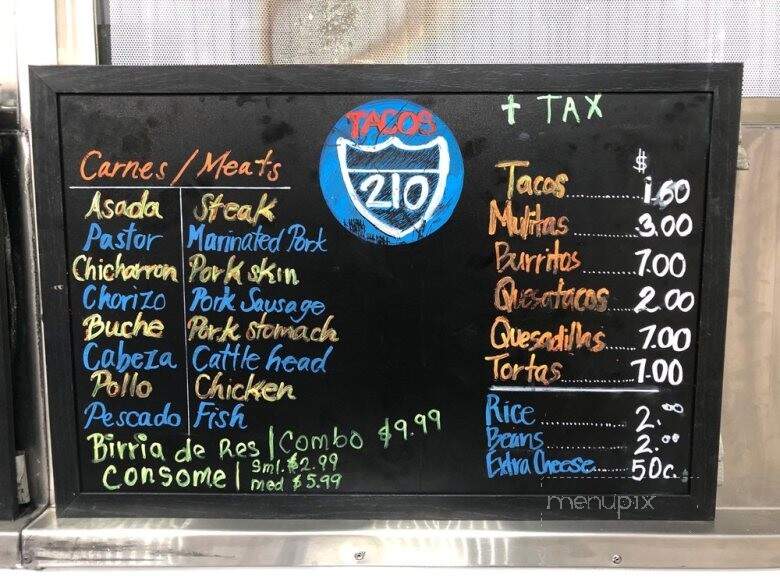 + TAX
TACOS
210
Carnes / Meats
Asada Steak
Pastor Marinated Pork
Chicharron Pork skin
Chorizo Pork Sausage
Buche Pork stomach
Cabeza Cattle head
Pollo Chicken
Pescado Fish
Birria de Res | Combo $9.99
Consome | Sml. $2.99
med $5.99
$
Tacos ........ 1.60
Mulitas ........ 3.00
Burritos ........ 7.00
Quesatacos ........ 2.00
Quesadillas ........ 7.00
Tortas ........ 7.00
Rice ........ 2.00
Beans ........ 2.00
Extra Cheese ........ 50c.
menupix